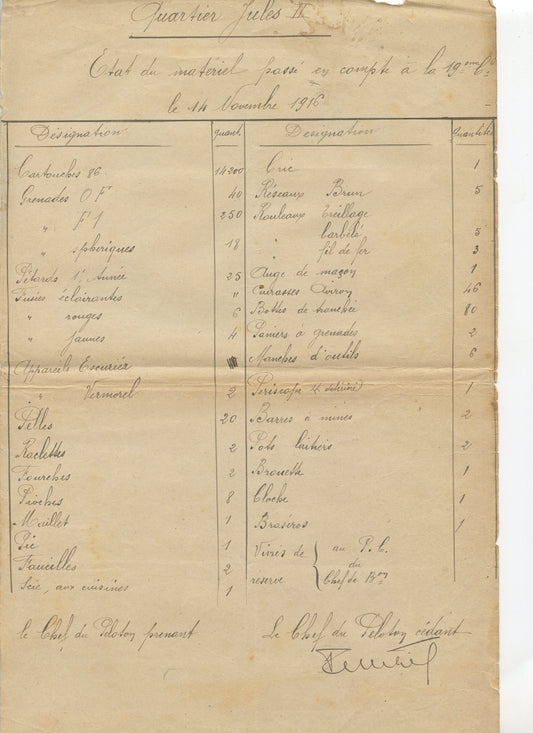 Quartier Jules II
Etat du matériel passé en compte à la 19ème Cie
le 14 Novembre 1916
Désignation quant.
Cartouches 86 14200
Grenades O F 40
" F1 250
" spheriques 18
Pétards 1 Année 25
Fusées éclairantes "
" rouges 6
" jaunes 4
Appareils
" Vermorel 2
Pelles 20
Raclettes 2
Fourches 2
Pioches 8
Maillet 1
Pic 1
Faucilles 2
Scie, aux cuisines 1
Désignation Quantités
Cric 1
Réseaux Brun 5
Rouleaux treillage
" barbelé 5
" fil de fer 3
Auge de maçon 1
Cuirasses 46
Bottes de tranchée 80
Paniers à grenades 2
Manches d'outils 6
Periscope 1
Barres à mines 2
Pots laitiers 2
Brouette 1
Cloche 1
Braséros 1
Vivres de reserve { au P.C. du Chef de Bon
le Chef du Peloton prenant
Le Chef du Peloton cédant